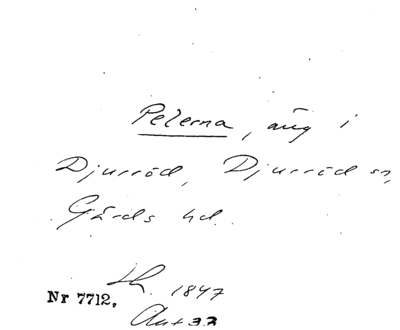 Pelerna, äng i
Djurröd, Djurröd sn,
Gärds hd.
Lh. 1847
Nr 7712.
Akt 33